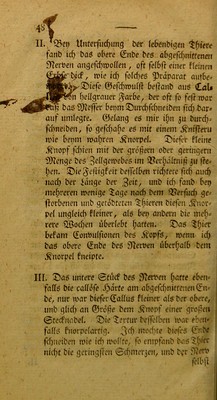 48
II. Bey Untersuchung der lebendigen Thiere
fand ich das obere Ende des abgeschnittenen
Nerven angeschwollen, oft selbst einer kleinen
Erbse dick, wie ich solches Präparat aufbe-
Diese Geschwulst bestand aus Cal-
von hellgrauer Farbe, der oft so fest war
daß das Messer beym Durchschneiden sich dar-
auf umlegte. Gelang es mir ihn zu durch-
schneiden, so geschahe es mit einem Knistern
wie beym wahren Knorpel. Dieser kleine
Knopf schien mit der größern oder geringern
Menge des Zellgewebes im Verhältniß zu ste-
hen. Die Festigkeit desselben richtete sich auch
nach der Länge der Zeit, und ich fand bey
mehreren wenige Tage nach dem Versuch ge-
storbenen und getödteten Thieren diesen Knor-
pel ungleich kleiner, als bey andern die meh-
rere Wochen überlebt hatten. Das Thier
bekam Convulsionen des Kopfs, wenn ich
das obere Ende des Nerven überhalb dem
Knorpel kneipte.
III. Das untere Stück des Nerven hatte eben-
falls die callöse Härte am abgeschnittenen En-
de, nur war dieser Callus kleiner als der obere,
und glich an Größe dem Knopf einer großen
Stecknadel. Die Textur desselben war eben-
falls knorpelartig. Ich mochte dieses Ende
schneiden wie ich wollte, so empfand das Thier
nicht die geringsten Schmerzen, und der Nerv
selbst